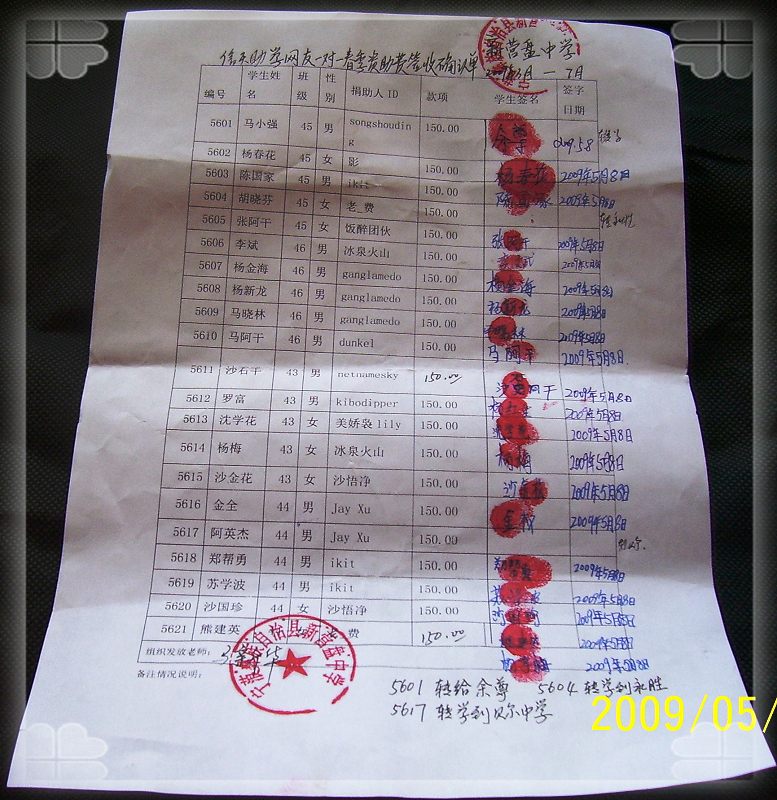 信天助学网友一对一春季资助费签收确认单 2009年3月—7月
营盘中学
编号 学生姓名 班级 性别 捐助人ID 款项 学生签名 签字日期
5601 马小强 45 男 songshouding 150.00 余尊 2009.5.8
5602 杨春花 45 女 影 150.00 杨春花 2009年5月8日
5603 陈国家 45 男 ikit 150.00 陈国家 2009年5月8日
5604 胡晓芬 45 女 老_费 150.00
5605 张阿干 45 女 饭醉团伙 150.00 张阿干 2009年5月8日
5606 李斌 46 男 冰泉火山 150.00 2009年5月8日
5607 杨金海 46 男 ganglamedo 150.00 杨金海 2009年5月8日
5608 杨新龙 46 男 ganglamedo 150.00 杨新龙 2009年5月8日
5609 马晓林 46 男 ganglamedo 150.00 2009年5月8日
5610 马阿干 46 男 dunkel 150.00 马阿干 2009年5月8日
5611 沙石干 43 男 netnamesky 150.00 2009年5月8日
5612 罗富 43 男 kibodipper 150.00 2009年5月8日
5613 沈学花 43 女 美娇袅lily 150.00 2009年5月8日
5614 杨梅 43 女 冰泉火山 150.00 杨梅 2009年5月8日
5615 沙金花 43 女 沙悟净 150.00 沙金花 2009年5月8日
5616 金全 44 男 Jay Xu 150.00 2009年5月8日
5617 阿英杰 44 男 Jay Xu 150.00
5618 郑帮勇 44 男 ikit 150.00 2009年5月8日
5619 苏学波 44 男 ikit 150.00 2009年5月8日
5620 沙国珍 44 女 沙悟净 150.00 沙国珍 2009年5月8日
5621 熊建英 费 150.00 2009年5月8日
2009年5月8日
组织发放老师:
宁蒗彝族自治县新营盘中学
备注情况说明:
5601 转给余尊 5604 转学到永胜
5617 转学到贝尔中学
2009/05/